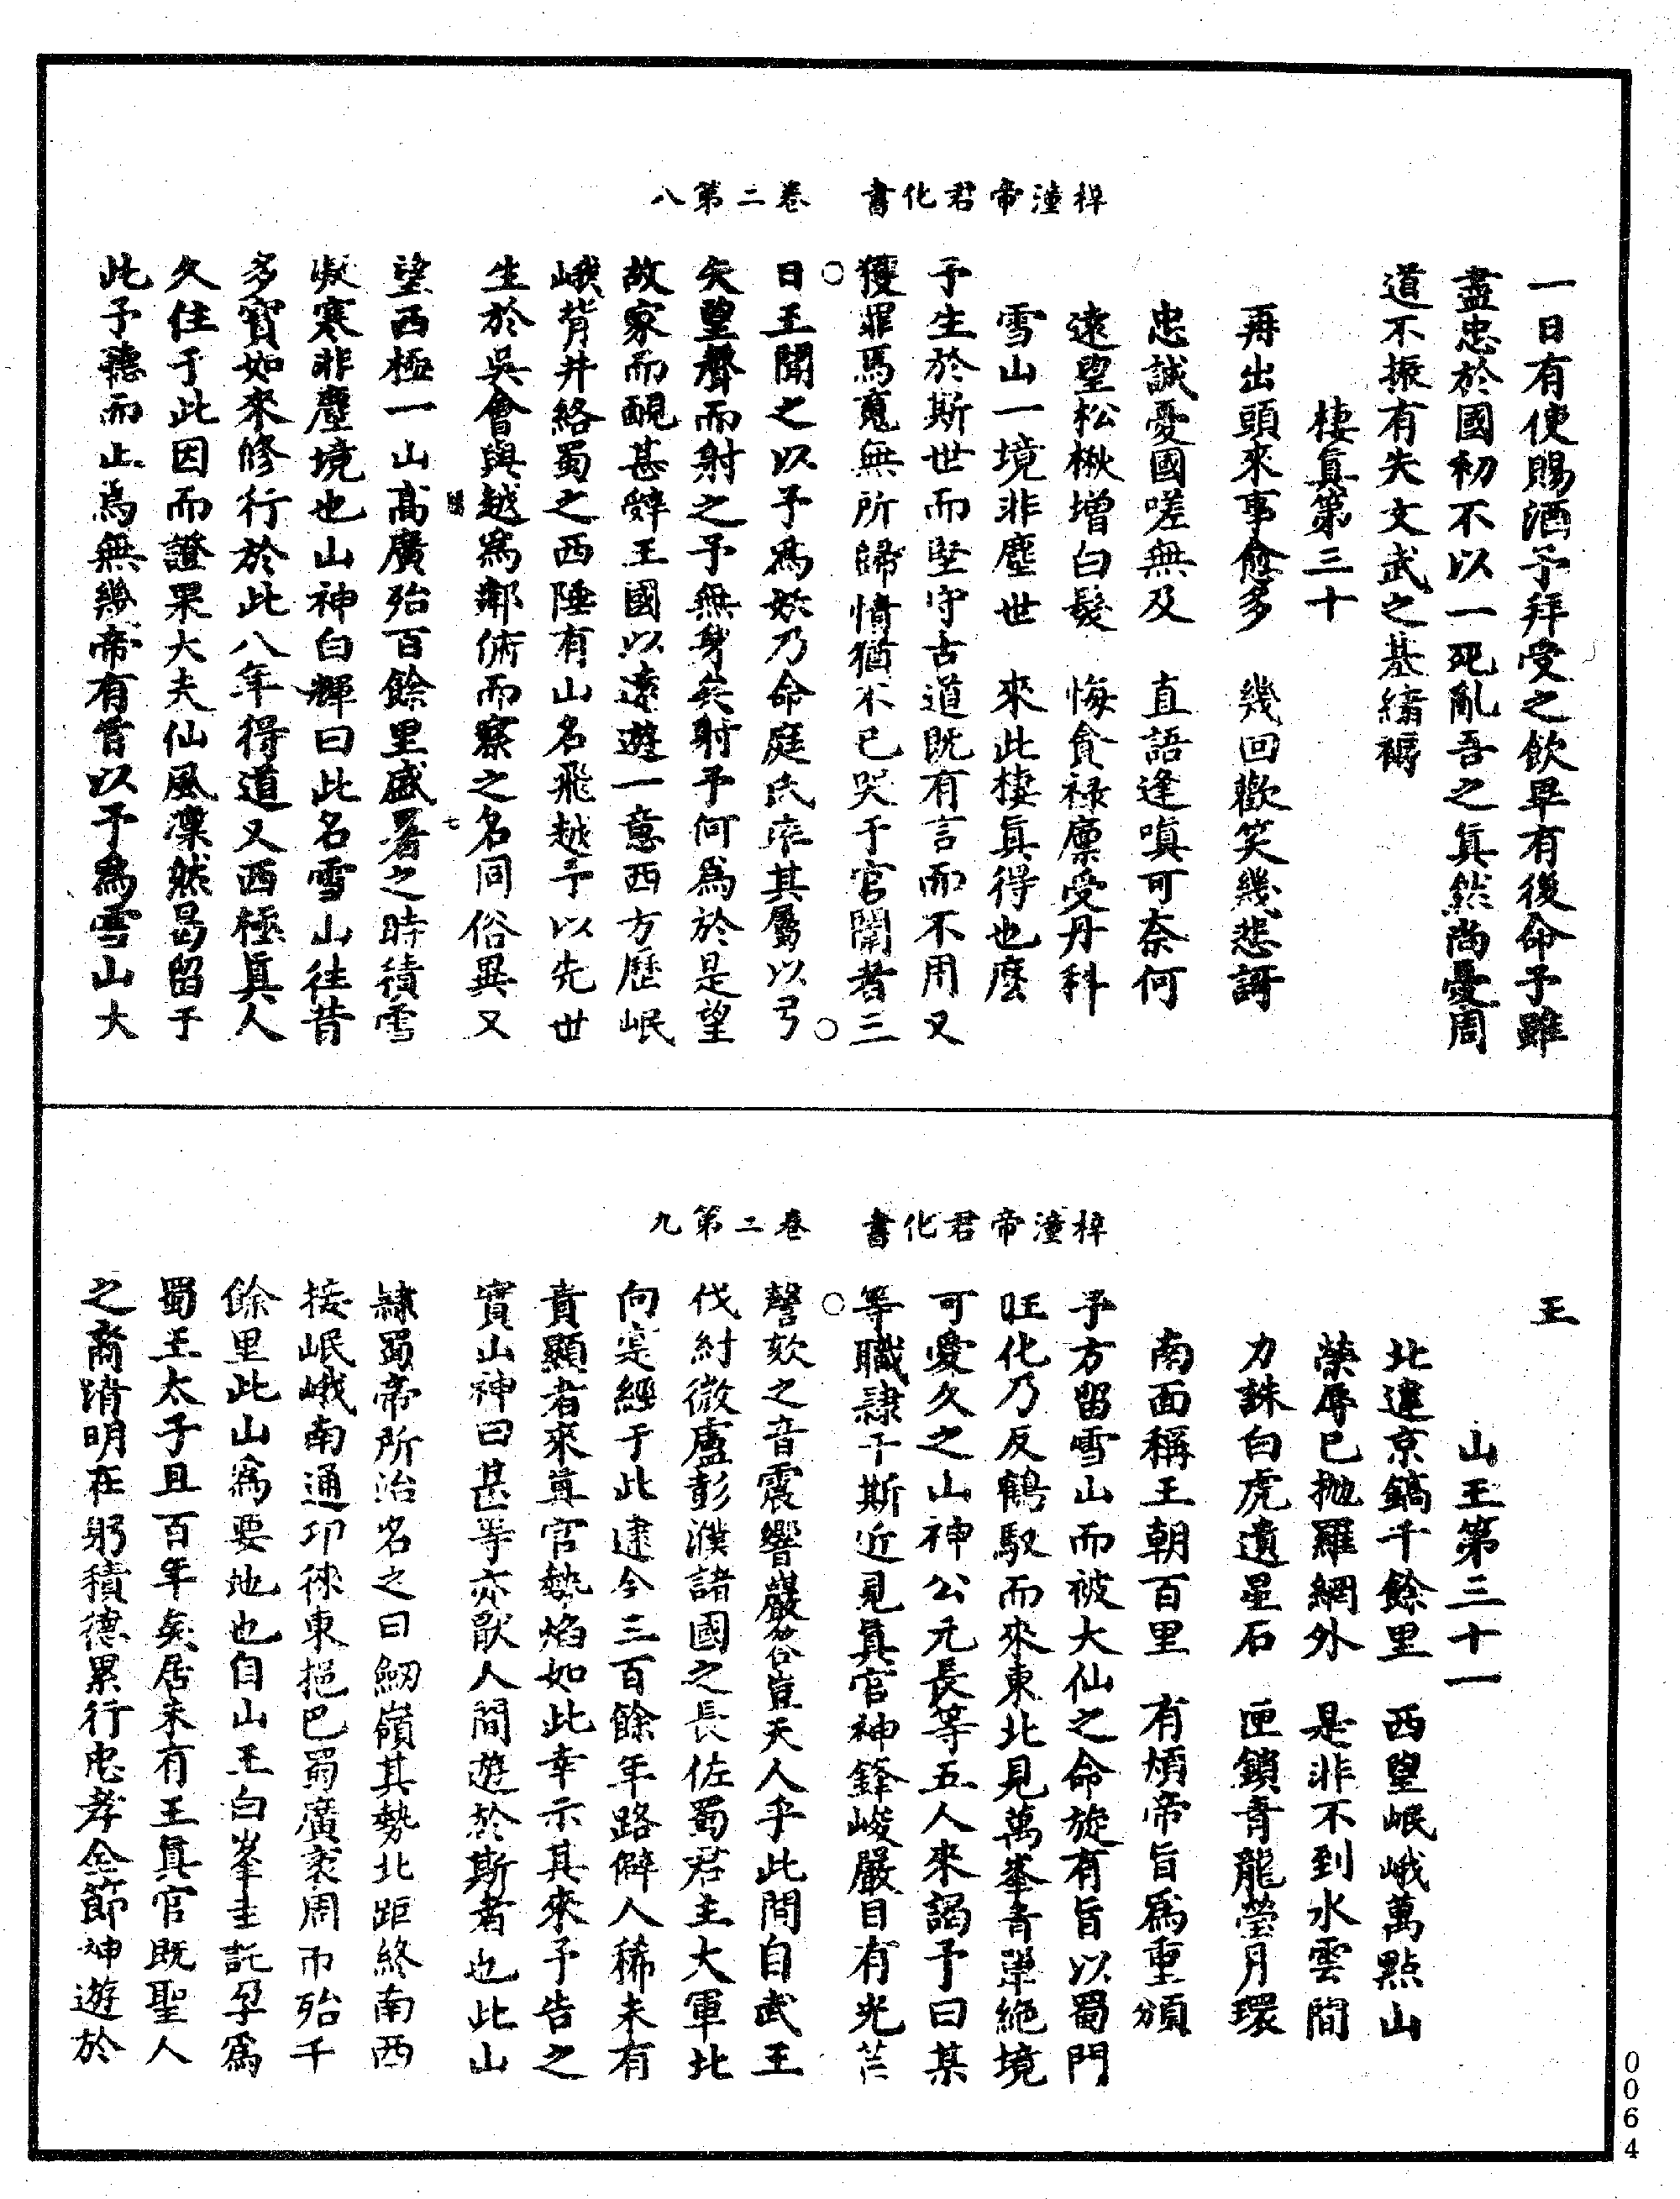 梓潼帝君化書　卷二第八
一日有使賜酒予拜受之飲畢有後命予雖
盡忠於國初不以一死亂吾之真然尚憂周
道不振有失文武之基緒禍
棲真第三十
再出頭來事愈多　幾回歡笑幾悲訶
忠誠憂國嗟無及　直語逢嗔可奈何
遠望松楸增白髮　悔貪祿廩受丹科
雪山一境非塵世　來此棲真得也麼
予生於斯世而堅守古道既有言而不用又
獲罪焉䰟無所歸情猶不已哭于宮闈者三
日王聞之以予為妖乃命庭氏率其屬以弓
矢望聲而射之予無身矣射予何為於是望
故家而覗甚辭王國以遠遊一意西方歷岷
峨背井絡蜀之西陲有山名飛越予以先世
生於吳會與越為鄰俯而察之名同俗異又
七
望西極一山高廣殆百餘里盛暑之時積雪
凝寒非塵境也山神白輝曰此名雪山往昔
多寶如來修行於此八年得道又西極真人
久住于此因而證果大夫仙風凜然曷留于
此予聽而止焉無幾帝有旨以予為雪山大
梓潼帝君化書　卷二第九
王
山王第三十一
北連京鎬千餘里　西望岷峨萬點山
榮辱已拋羅網外　是非不到水雲間
力誅白虎遺星石　匣鎖青龍瑩月環
南面稱王朝百里　有煩帝旨為重頒
予方留雪山而被大仙之命旋有旨以蜀門
旺化乃反鶴馭而來東北見萬峯青翠絕境
可愛久之山神公元長等五人來謁予曰某
等職隸于斯近見真官神鋒峻嚴目有光芒
謦欬之音震響巖谷豈天人乎此間自武王
伐紂微盧彭濮諸國之長佐蜀君主大軍北
向寔經于此逮今三百餘年路僻人稀未有
貴顯者來真官勢焰如此幸示其來予告之
實山神曰某等亦厭人間遊於斯者也此山
隸蜀帝所治名之曰劒嶺其勢北距終南西
接岷峨南通邛徠東挹巴蜀廣袤周帀殆千
餘里此山為要地也自山王白峯主託孕為
蜀王太子且百年矣居未有王真官既聖人
之裔清明在躬積德累行忠孝全節神遊於
0064